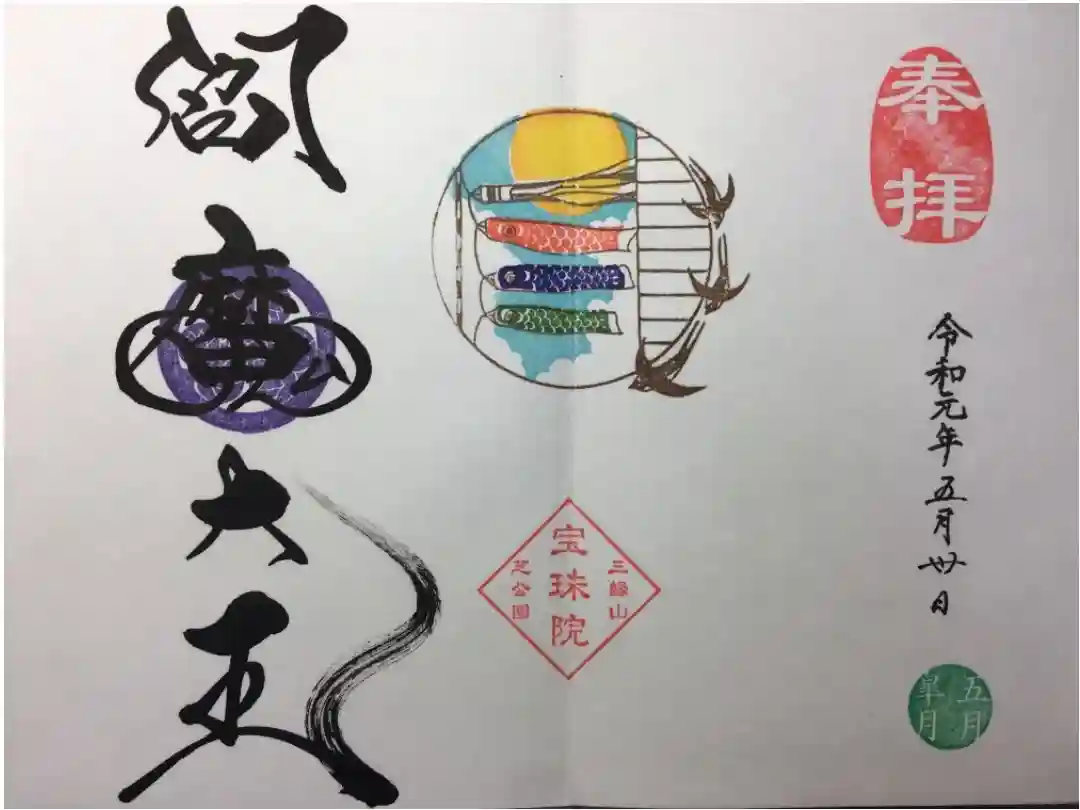 奉拝
令和元年五月卅日
五月
皐月
三縁山
宝珠院
芝公園
閻魔大王